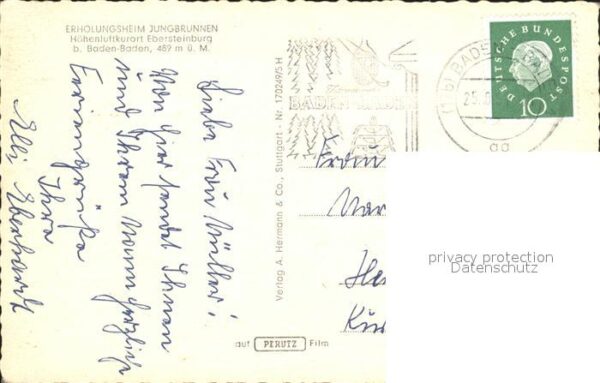 ERHOLUNGSHEIM JUNGBRUNNEN
Höhenluftkurort Ebersteinburg
b. Baden-Baden, 489 m ü. M.
Liebe Frau Müller!
Von hier sendet Ihnen
und Ihrem Mann herzliche
Feriengrüße
Ihre
Elli Eberhardt
Verlag A. Hermann & Co., Stuttgart - Nr. 1702495 H
auf PERUTZ Film
BADEN-BADEN
DEUTSCHE BUNDESPOST
10
Frau
privacy protection
Datenschutz